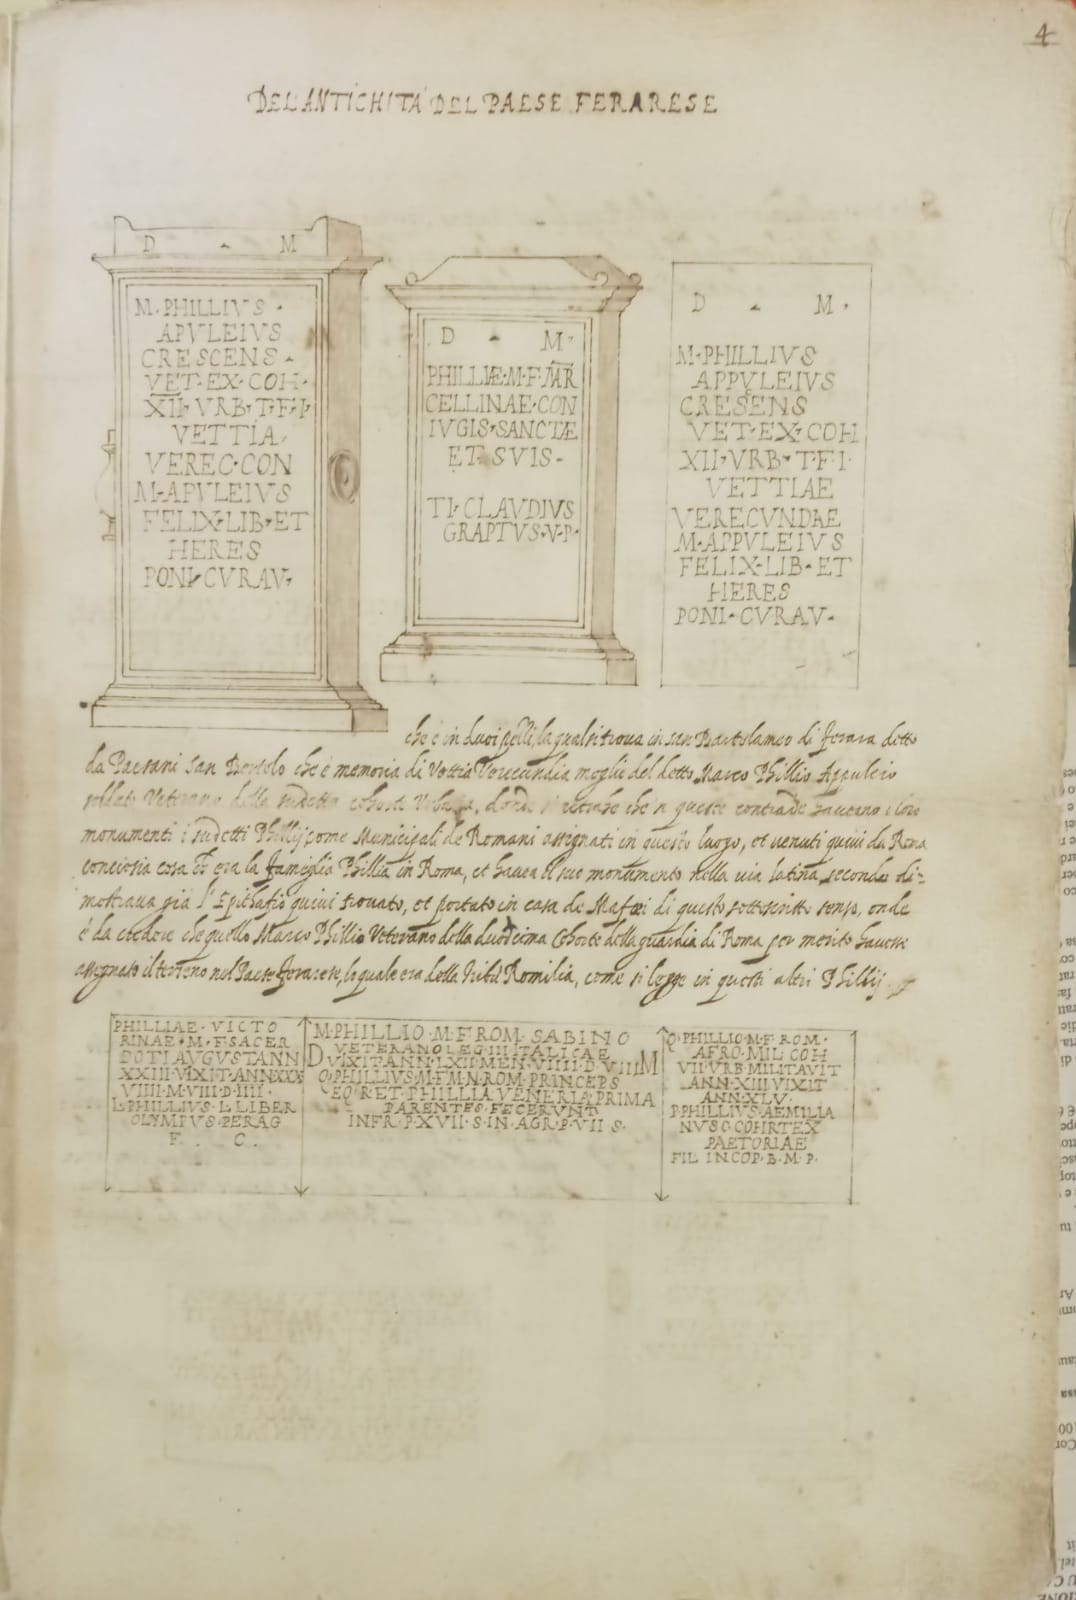 4
DEL'ANTICHITA' DEL PAESE FERARESE
D M
M·PHILLIVS·
APVLEIVS
CRESCENS
VET·EX·COH·
XII·VRB·T·F·I·
VETTIA
VEREC·CON
M·APVLEIVS
FELIX·LIB·ET
HERES
PONI·CVRAV
D M
PHILLIÆ·M·F·MAR
CELLINAE·CON
IVGIS·SANCTÆ
ET·SVIS
TI·CLAVDIVS
GRAPTVS·V·P·
D M·
M·PHILLIVS
APPVLEIVS
CRESCENS
VET·EX·COH
XII·VRB·T·F·I·
VETTIAE
VERECVNDAE
M·APPVLEIVS
FELIX·LIB·ET
HERES
PONI·CVRAV
che è in duoi pelli, la qual si troua in san Bartolameo di ferara detto
da Paesani San Bortolo che è memoria di Vettia Verecundia moglie del detto Marco Phillio Appuleio
soldato Veterano della sudetta cohorte che n queste contrade haueano i loro
monumenti i sudetti Phillij come Municipali de Romani assignati in questo luogo, et uenuti quiui da Roma
conciosia cosa era la fameglia Phillia in Roma, et hauea il suo monumento nella uia latina secondo di=
mostraua già l'Epitafio quiui trouato, et portato in casa de Mafei di questo sottoscritto senso, onde
è da credere che quello Marco Phillio Veterano della duodecima Cohorte della guardia di Roma per merito hauesse
assegnato il terreno nel Paese ferarese, lo quale era della tribù Romilia, come si legge in questi altri Phillij
PHILLIAE·VICTO
RINAE·M·F·SACER
DOTI AVGVSTANN
XXIII·VIXIT·ANN XXX
VIIII·M·VIII·D·IIII·
L·PHILLIVS·L·LIBER
OLYMPVS·PERAG
F. C.
M·PHILLIO·M·F·ROM·SABINO
VETERANO LEG III ITALICAE
D VIXIT ANN·LXII·MEN·VIIII·D·VIII M
Q·PHILLIVS·M·F·M·N·ROM·PRINCEPS
EQ·R·ET·PHILLIA VENERIA·PRIMA
PARENTES·FECERVNT
INFR·P·XVII·S·IN·AGR·P·VII S·
Q·PHILLIO·M·F·ROM·
AFRO·MIL COH
VII·VRB·MILITAVIT
ANN·XIII·VIXIT
ANN·XLV·
P·PHILLIVS·AEMILIA
NVS C·COHRTEX
PAETORIAE
FIL INCOP·B·M·P·